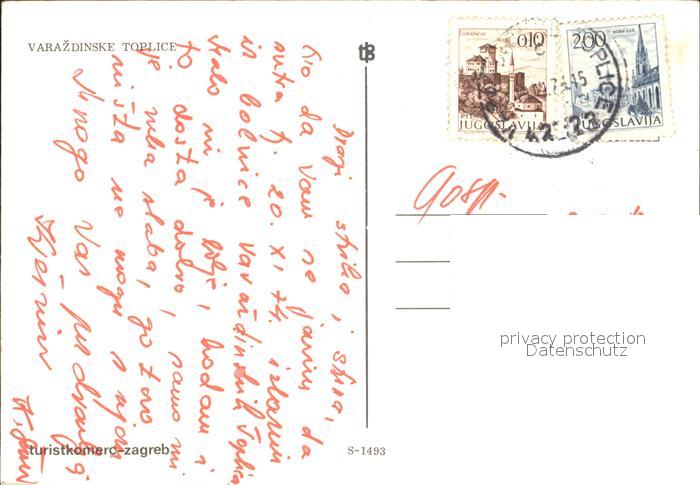 VARAŽDINSKE TOPLICE
GRADAČAC
0,10
PTT
JUGOSLAVIJA
2,00
JUGOSLAVIJA
Dragi striko i strina,
Evo da Vam se javim da
sutra tj. 20. XI 74. izlazim
iz bolnice Varaždinskih Toplica
malo mi je bolje, hodam i
to dosta dobro, samo mi
je ruka slaba, gotovo
ništa ne mogu s njom
Mnogo Vas pozdravlja
Gosp.
turistkomerc-zagreb
S-1493
privacy protection
Datenschutz